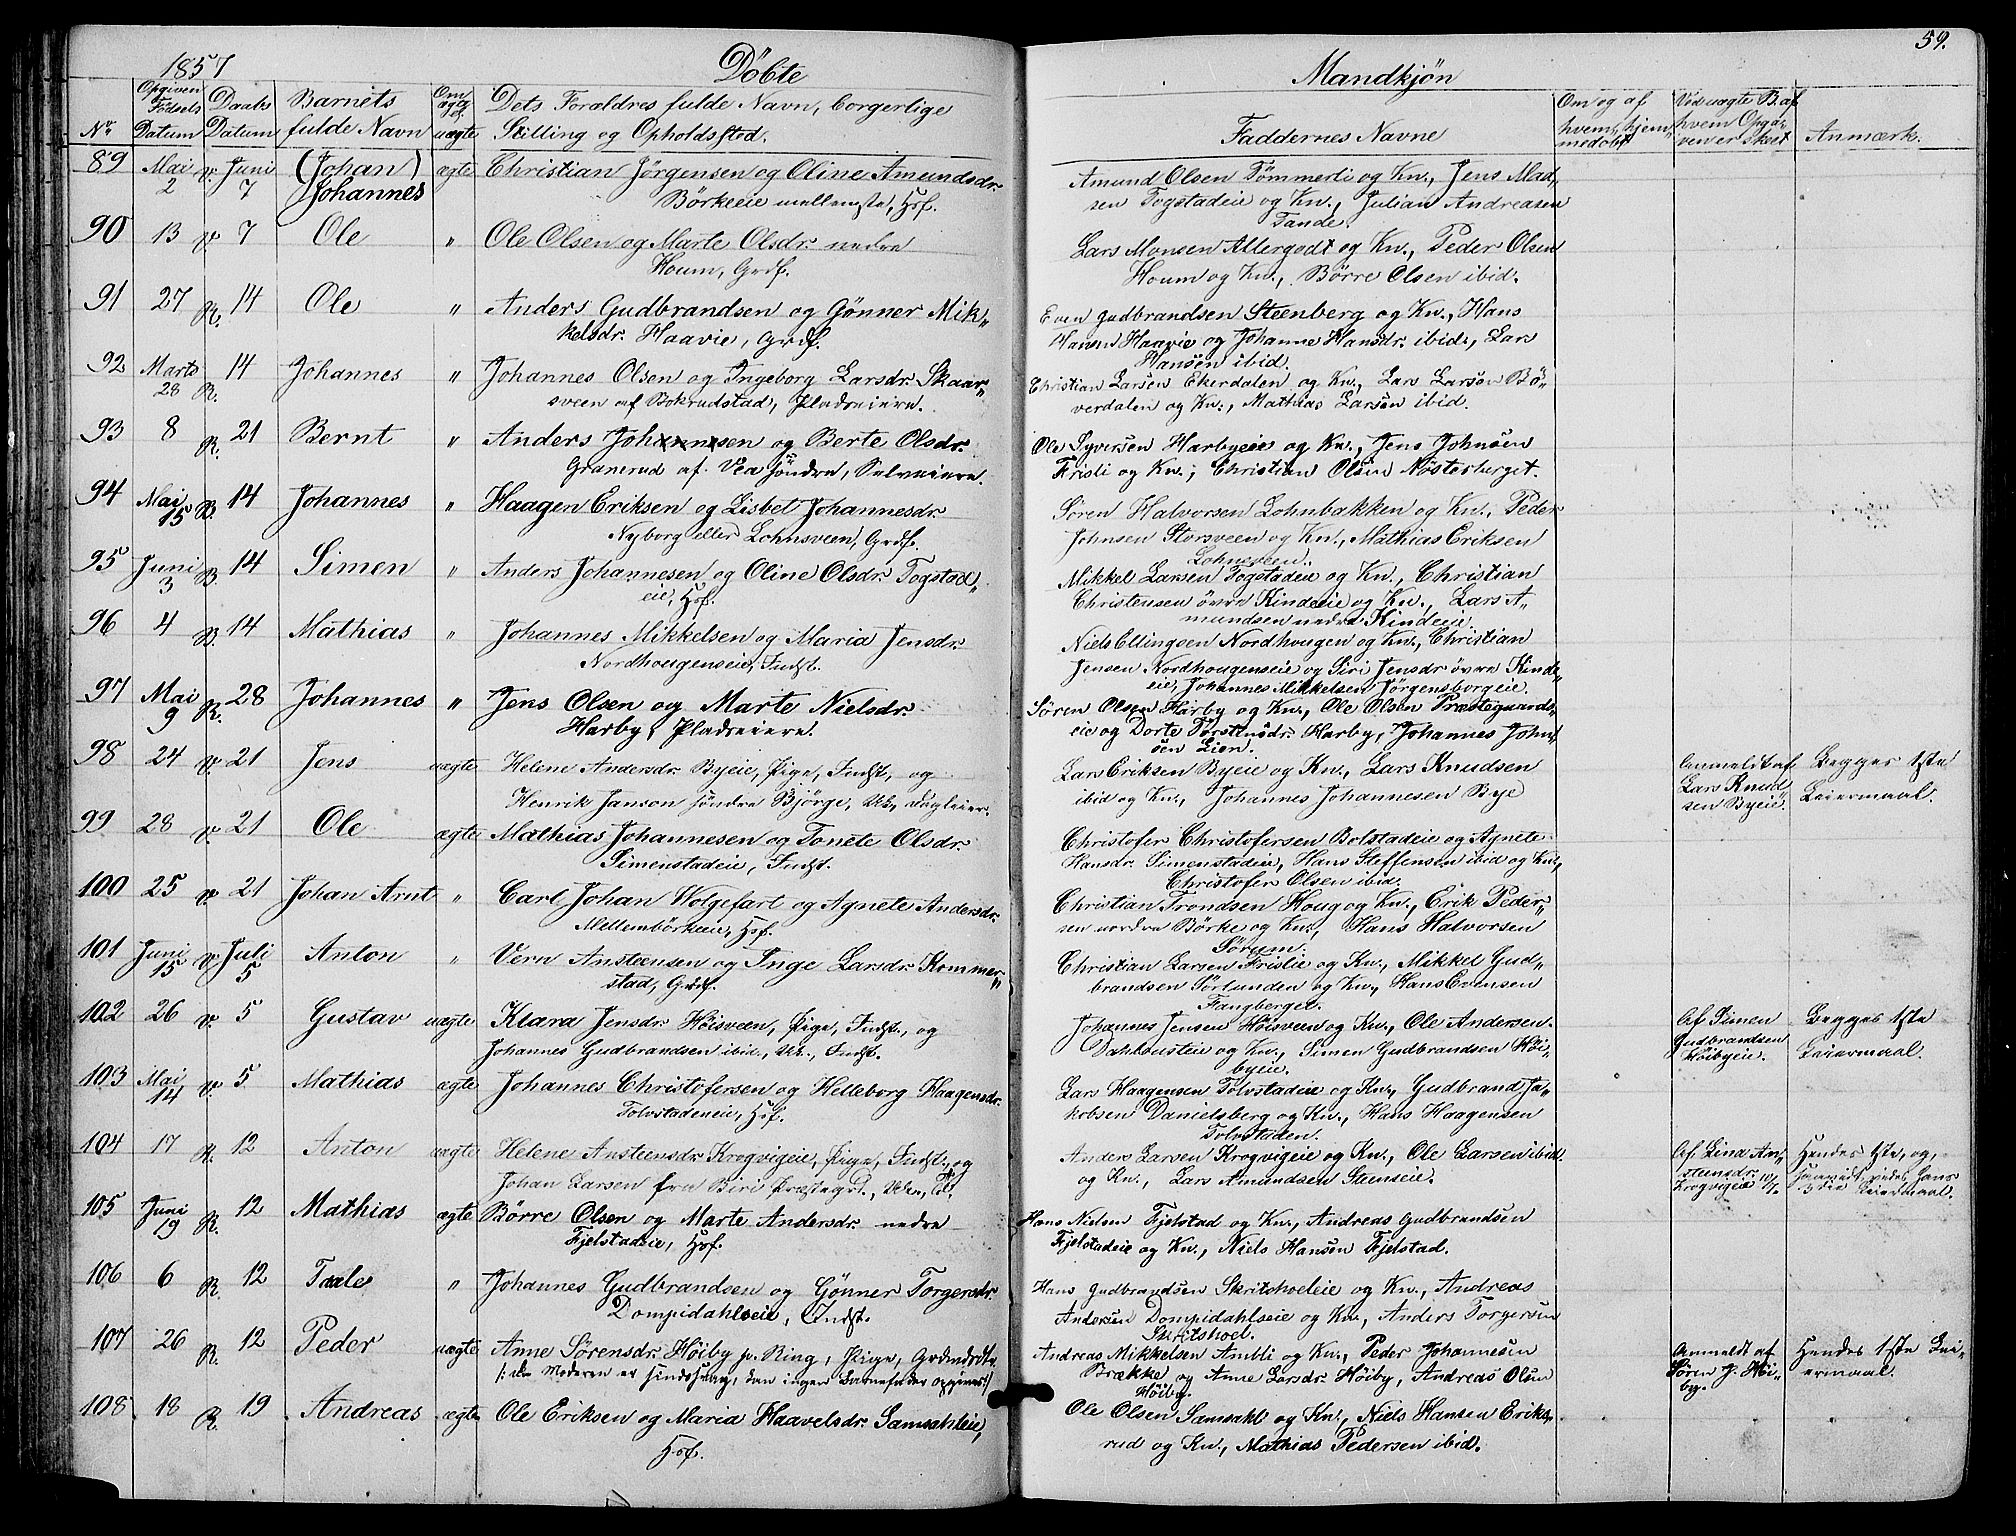 1857 Döbte
No. Opgiven Födsels Datum Daabs Datum Barnets fulde Navn Om ægte el. uægte Dets Forældres fulde Navn, borgerlige
Stilling og Opholdssted.
89 Mai 2 v. Juni 7 (Johan) Johannes ægte Christian Jörgensen og Oline Amundsdr.
Börkeeie mellengste, Hsf.
90 13 v. 7 Ole " Ole Olsen og Marte Olsdr. nedre
Houm, Grdf.
91 27 R. 14 Ole " Anders Gudbrandsen og Gönner Mik„
kelsdr. Haavie, Grdf.
92 Marts 28 R. 14 Johannes " Johannes Olsen og Ingeborg Larsdr. Skaar„
sveen af Bokrudstad, Pladseiere.
93 8 R. 21 Bernt " Anders Johannesen og Berte Olsdr.
Granerud af Vea söndre, Selveiere.
94 Mai 15 B. 14 Johannes " Haagen Eriksen og Lisbet Johannesdr.
Nyborg eller Lohnsveen, Grdf.
95 Juni 3 B. 14 Simen " Anders Johannesen og Oline Olsdr. Togstad„
eie, Hsf.
96 4 B. 14 Mathias " Johannes Mikkelsen og Maria Jensdr.
Nordhougenseie, Indst.
97 Mai 9 R. 28 Johannes " Jens Olsen og Marte Nielsdr.
Harby, Pladseiere.
98 24 v. 21 Jens uægte Helene Andersdr. Byeie, Pige, Indst., og
Henrik Janson söndre Björge, Uk., Dagleier.
99 28 v. 21 Ole ægte Mathias Johannesen og Tonete Olsdr.
Simenstadeie, Indst.
100 25 v. 21 Johan Arnt " Carl Johan Wolgefart og Agnete Andersdr.
Mellembörkeeie, Hsf.
101 Juni 15 v. Juli 5 Anton " Vern Ansteensen og Inge Larsdr. Kommer„
stad, Grdf.
102 26 v. 5 Gustav uægte Klara Jensdr. Höisveen, Pige, Indst., og
Johannes Gudbrandsen ibid., Uk., Indst.
103 Mai 14 v. 5 Mathias ægte Johannes Christofersen og Helleborg Haagensdr.
Tolvstadeneie, Hsf.
104 17 R. 12 Anton uægte Helene Ansteensdr. Krogvigeie, Pige, Indst., og
Johan Larsen fra Biri Præstegd.,
105 Juni 19 R. 12 Mathias ægte Börre Olsen og Marte Andersdr. nedre
Fjelstadeie, Hsf.
106 6 R. 12 Taale " Johannes Gudbrandsen og Gönner Torgersdr.
Dompidahlseie, Indst.
107 26 R. 12 Peder uægte Anne Sörensdr. Höiby p. Ring, Pige,
/: da Moderen er sindssvag, kan ingen Barnefader opgives :/
108 18 R. 19 Andreas ægte Ole Eriksen og Maria Haavelsdr. Samsahleie,
Hsf.
59.
Mandkjön
Faddernes Navne Om og af hvem hjemmedöbt Ved uægte B. af hvem Opgaven er skeet Anmærk.
Amund Olsen Tömmerli og Kn., Jens Mad„
sen Togstadeie og Kn., Julian Andreasen
Tande.
Lars Monsen Allergodt og Kn., Peder Olsen
Houm og Kn., Börre Olsen ibid.
Even Gudbrandsen Steenberg og Kn., Hans
Hansen Haavie og Johanne Hansdr. ibid., Lars
Hansen ibid.
Christian Larsen Ekerdalen og Kn., Lars Larsen Bö„
verdalen og Kn., Mathias Larsen ibid.
Ole Syversen Harbyeie og Kn., Jens Johnsen
Fristi og Kn.; Christian Olsen Nösterberget.
Sören Halvorsen Lohnbakken og Kn., Peder
Johnsen Storsveen og Kn., Mathias Eriksen
Lohnsveen.
Mikkel Larsen Togstadeie og Kn., Christian
Christensen övre Kindeeie og Kn., Lars A„
mundsen nedre Kindeeie.
Niels Ellingsen Nordhougen og Kn., Christian
Jensen Nordhougenseie og Siri Jensdr. övre Kinde„
eie, Johannes Mikkelsen Jörgensborgeie.
Sören Olsen Harby og Kn., Ole Olsen Præstegaards„
eie og Dorte Torstensdr. Harby, Johannes John„
sen Lien.
Lars Eriksen Byeie og Kn., Lars Knudsen
ibid og Kn., Johannes Johannesen Bye
Anmeldt af
Lars Knud„
sen Byeie.
Begges 1ste
Leiermaal.
Christofer Christofersen Bolstadeie og Agnete
Hansdr. Simenstadeie, Hans Steffensen ibid og Kn.,
Christofer Olsen ibid.
Christian Trondsen Houg og Kn., Erik Peder„
sen nordre Börke og Kn., Hans Halvorsen
Sörum.
Christian Larsen Frislie og Kn., Mikkel Gud„
brandsen Sörlunden og Kn., Hans Evensen
Fangberget.
Johannes Jensen Höisveen og Kn., Ole Andersen
og Kn., Simen Gudbrandsen Höi„
byeie.
Af Simen
Gudbrandsen
Höibyeie.
Begges 1ste
Leiermaal.
Lars Haagensen Tolvstadeie og Kn., Gudbrand Ja„
kobsen Danielsberg og Kn., Hans Haagensen
Tolvstaden.
Anders Larsen Krogvigeie og Kn., Ole Larsen ibid.
og Kn., Lars Amundsen Steinseie.
Af Lina An„
steensdr.
Krogvigeie
Hendes 1ste, og,
saavidt vides, hans
3die Leiermaal.
Hans Nielsen Fjelstad og Kn., Andreas Gudbrandsen
Fjelstadeie og Kn., Niels Hansen Fjelstad.
Hans Gudbrandsen Skritshoeleie og Kn., Andreas
Andersen Dompidahlseie og Kn., Anders Torgersen
Skritshoel.
Andreas Mikkelsen Ambli og Kn., Peder Johannesen
Brække og Anne Larsdr. Höiby, Andreas Olsen
Höiby.
Anmeldt af
Sören J. Höi„
by.
Hendes 1ste Lei„
ermaal.
Ole Olsen Samsahl og Kn., Niels Hansen Eriks„
rud og Kn., Mathias Pedersen ibid.